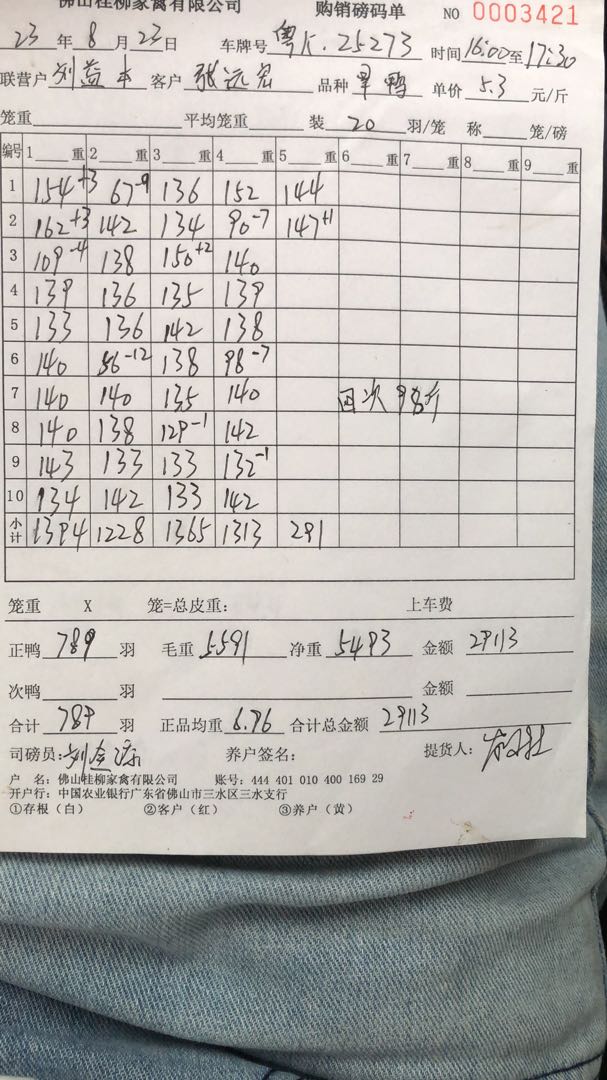 佛山桂柳家禽有限公司 购销磅码单 NO 0003421
23 年 8 月 23 日 车牌号 粤K.25273 时间 16:00 至 17:30
联营户 刘益丰 客户 张远宏 品种 旱鸭 单价 5.3 元/斤
笼重 平均笼重 装 20 羽/笼 称 笼/磅
编号 1 重 2 重 3 重 4 重 5 重 6 重 7 重 8 重 9 重
1 154+3 67-9 136 152 144
2 162+3 142 134 90-7 147+1
3 109-4 138 150+2 140
4 139 136 135 139
5 133 136 142 138
6 140 56-12 138 98-7
7 140 140 135 140 回次 98斤
8 140 138 129-1 142
9 143 133 133 132-1
10 134 142 133 142
小计 1394 1228 1365 1313 291
笼重 X 笼=总皮重: 上车费
正鸭 789 羽 毛重 5591 净重 5493 金额 29113
次鸭 羽 金额
合计 789 羽 正品均重 6.96 合计总金额 29113
司磅员: 养户签名: 提货人:
户 名: 佛山桂柳家禽有限公司 账号: 444 401 010 400 169 29
开户行: 中国农业银行广东省佛山市三水区三水支行
①存根(白) ②客户(红) ③养户(黄)